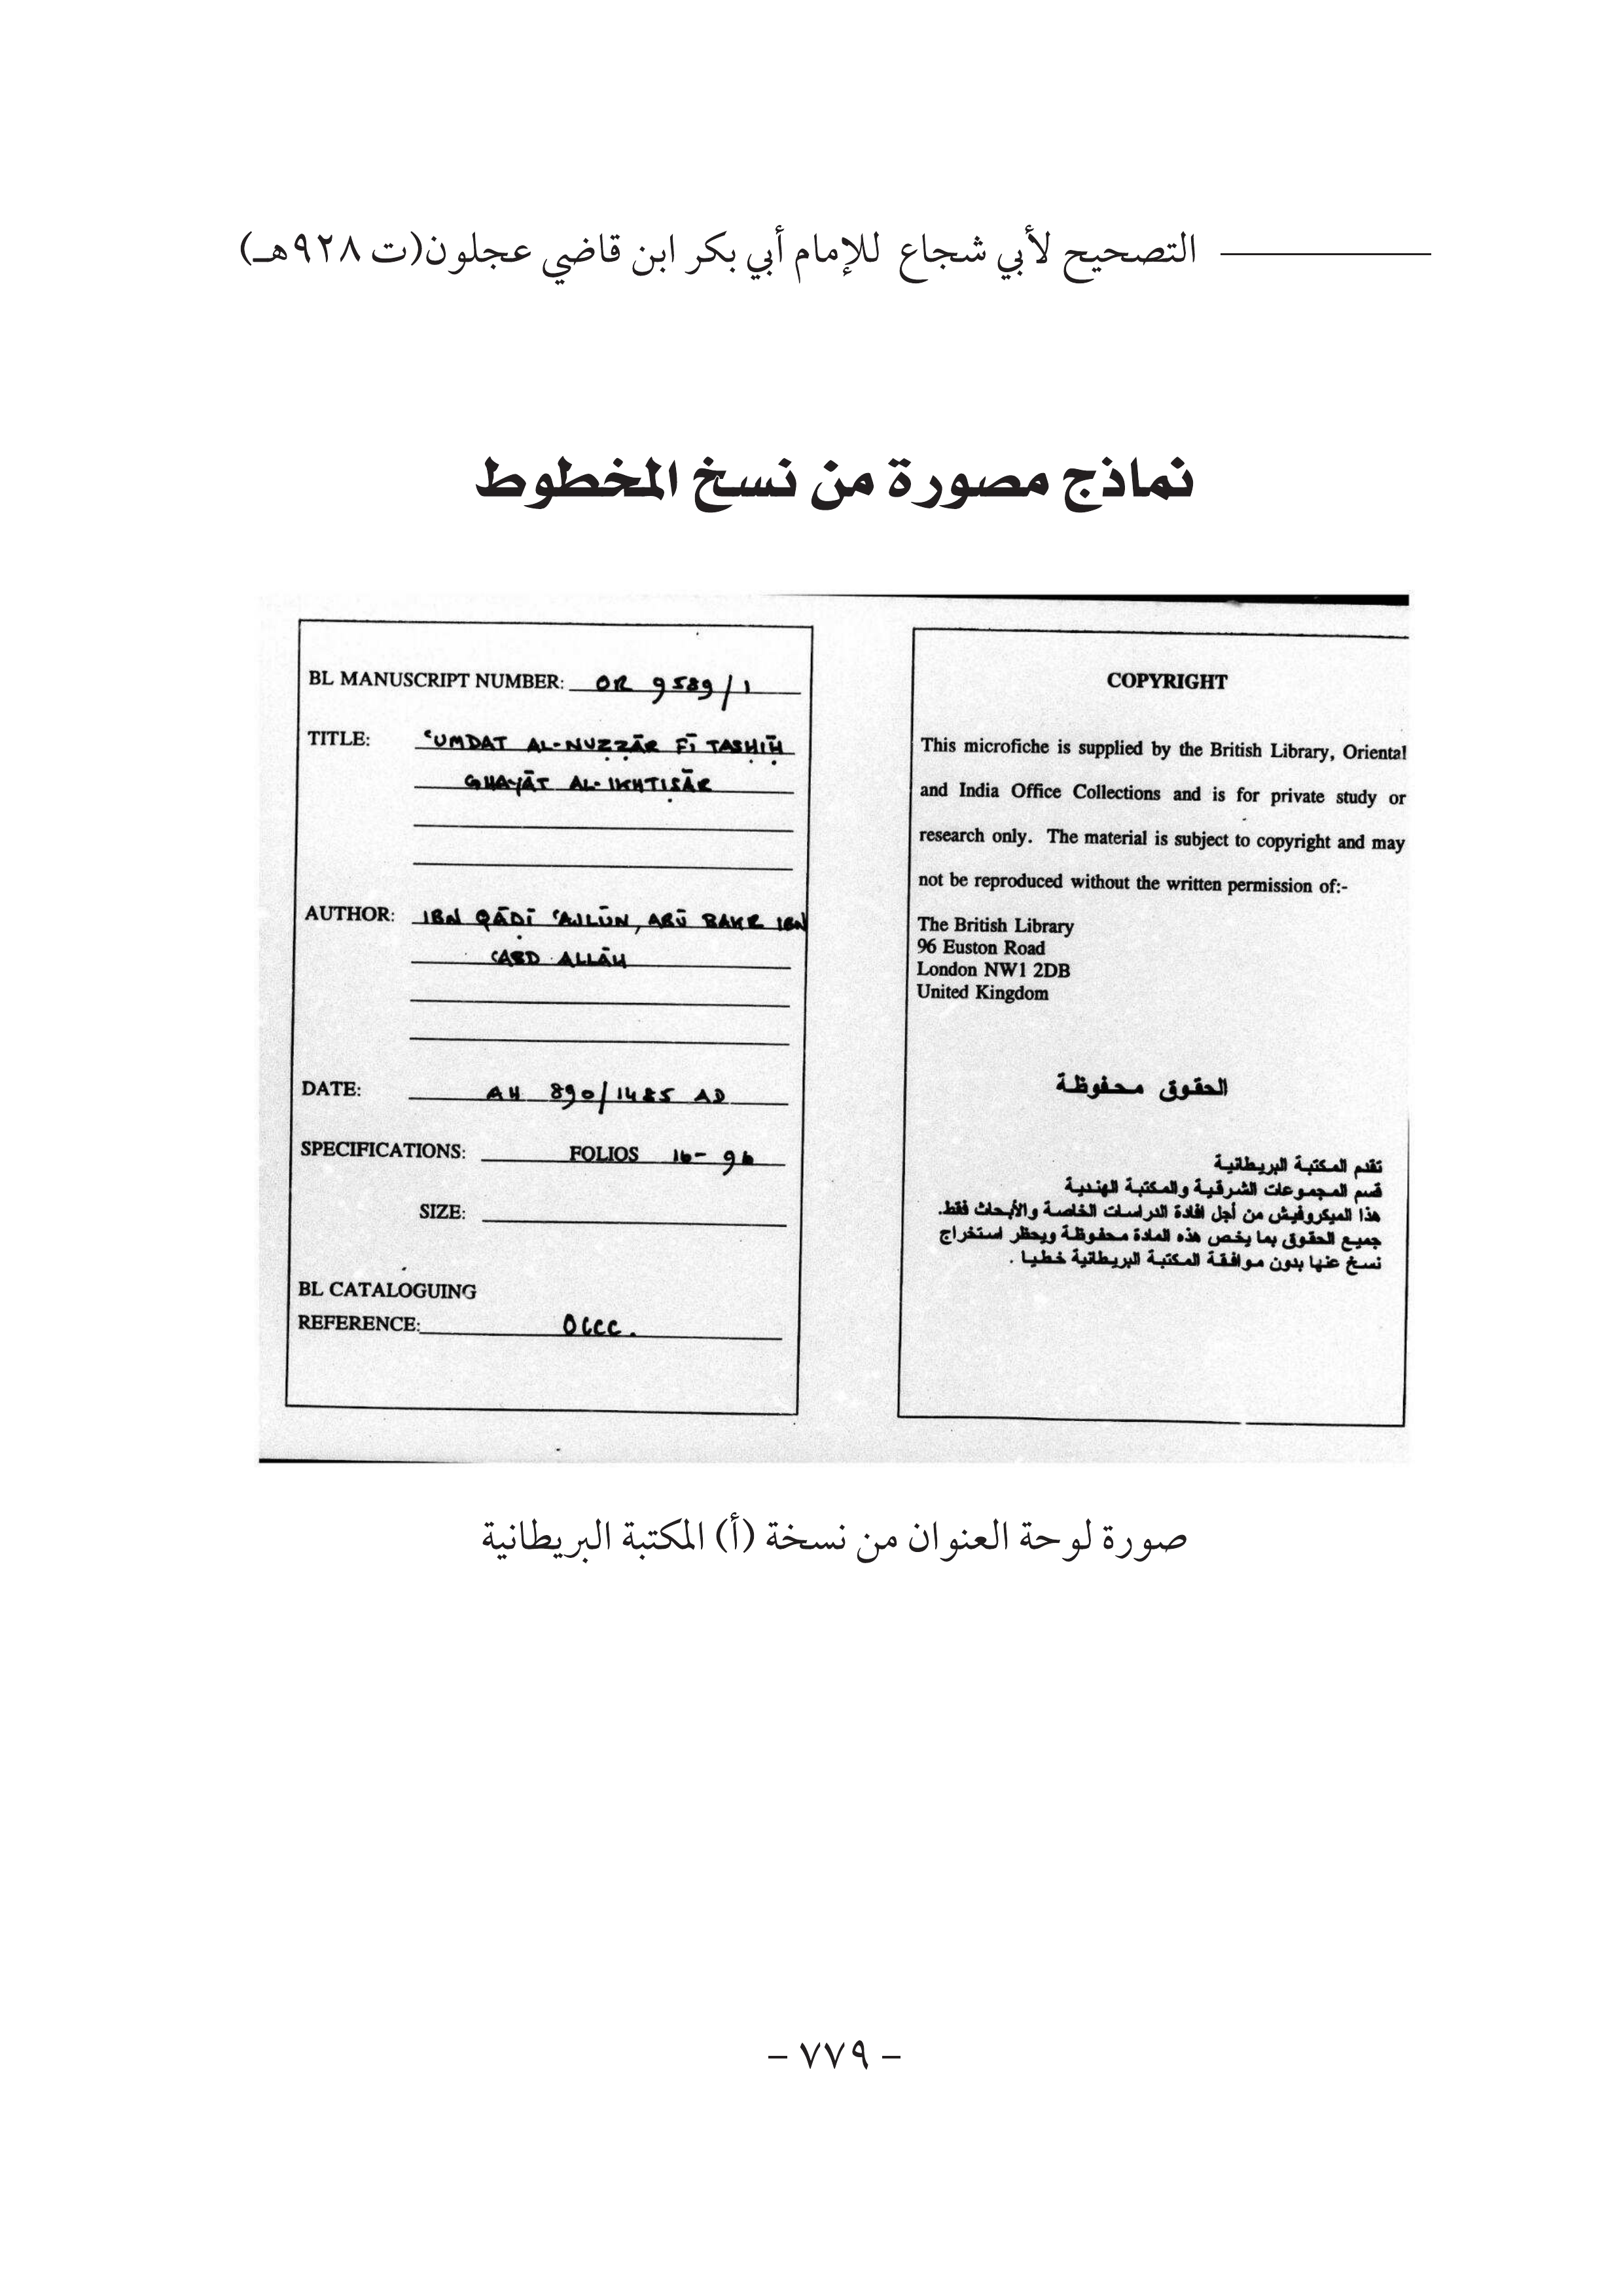 التصحيح لأبي شجاع للإمام أبي بكر ابن قاضي عجلون(ت ٩٢٨هـ)
نماذج مصورة من نسخ المخطوط
BL MANUSCRIPT NUMBER: OR 9589/1
TITLE: ʿUMDAT AL-NUẒẒĀR FĪ TAṢḤĪḤ
GHAYĀT AL-IKHTIṢĀR
AUTHOR: IBN QĀḌĪ ʿAJLŪN, ABŪ BAKR IBN
ʿABD ALLĀH
DATE: AH 890/1485 AD
SPECIFICATIONS: FOLIOS 1b- 9b
SIZE:
BL CATALOGUING
REFERENCE: OCCC.
COPYRIGHT
This microfiche is supplied by the British Library, Oriental
and India Office Collections and is for private study or
research only. The material is subject to copyright and may
not be reproduced without the written permission of:-
The British Library
96 Euston Road
London NW1 2DB
United Kingdom
الحقوق محفوظة
تقدم المكتبة البريطانية
قسم المجموعات الشرقية والمكتبة الهندية
هذا الميكروفيش من أجل افادة الدراسات الخاصة والأبحاث فقط.
جميع الحقوق بما يخص هذه المادة محفوظة ويحظر استخراج
نسخ عنها بدون موافقة المكتبة البريطانية خطيا .
صورة لوحة العنوان من نسخة (أ) المكتبة البريطانية
- ٧٧٩ -